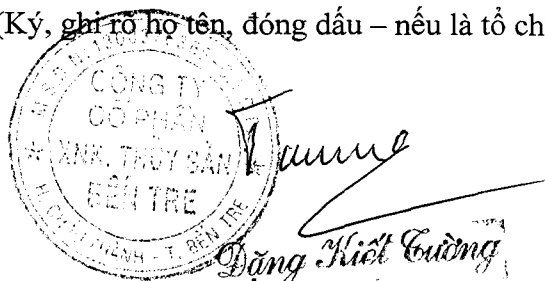 (Ký, ghi rõ họ tên, đóng dấu – nếu là tổ ch
CÔNG TY
CỔ PHẦN
XNK. THỦY SẢN
BẾN TRE
T. BẾN TRE
Đặng Kiết Tường